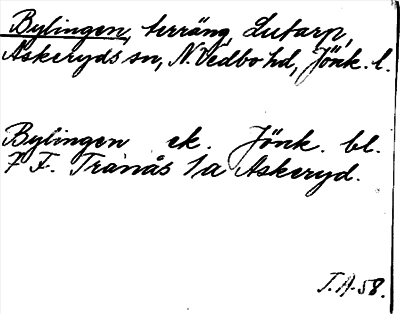 Bylingen, terräng, Lutarp,
Askeryds sn, N. Vedbo hd, Jönk. l.
Bylingen ek. Jönk. bl.
7 F. Tranås 1a Askeryd.
T.A. 58.